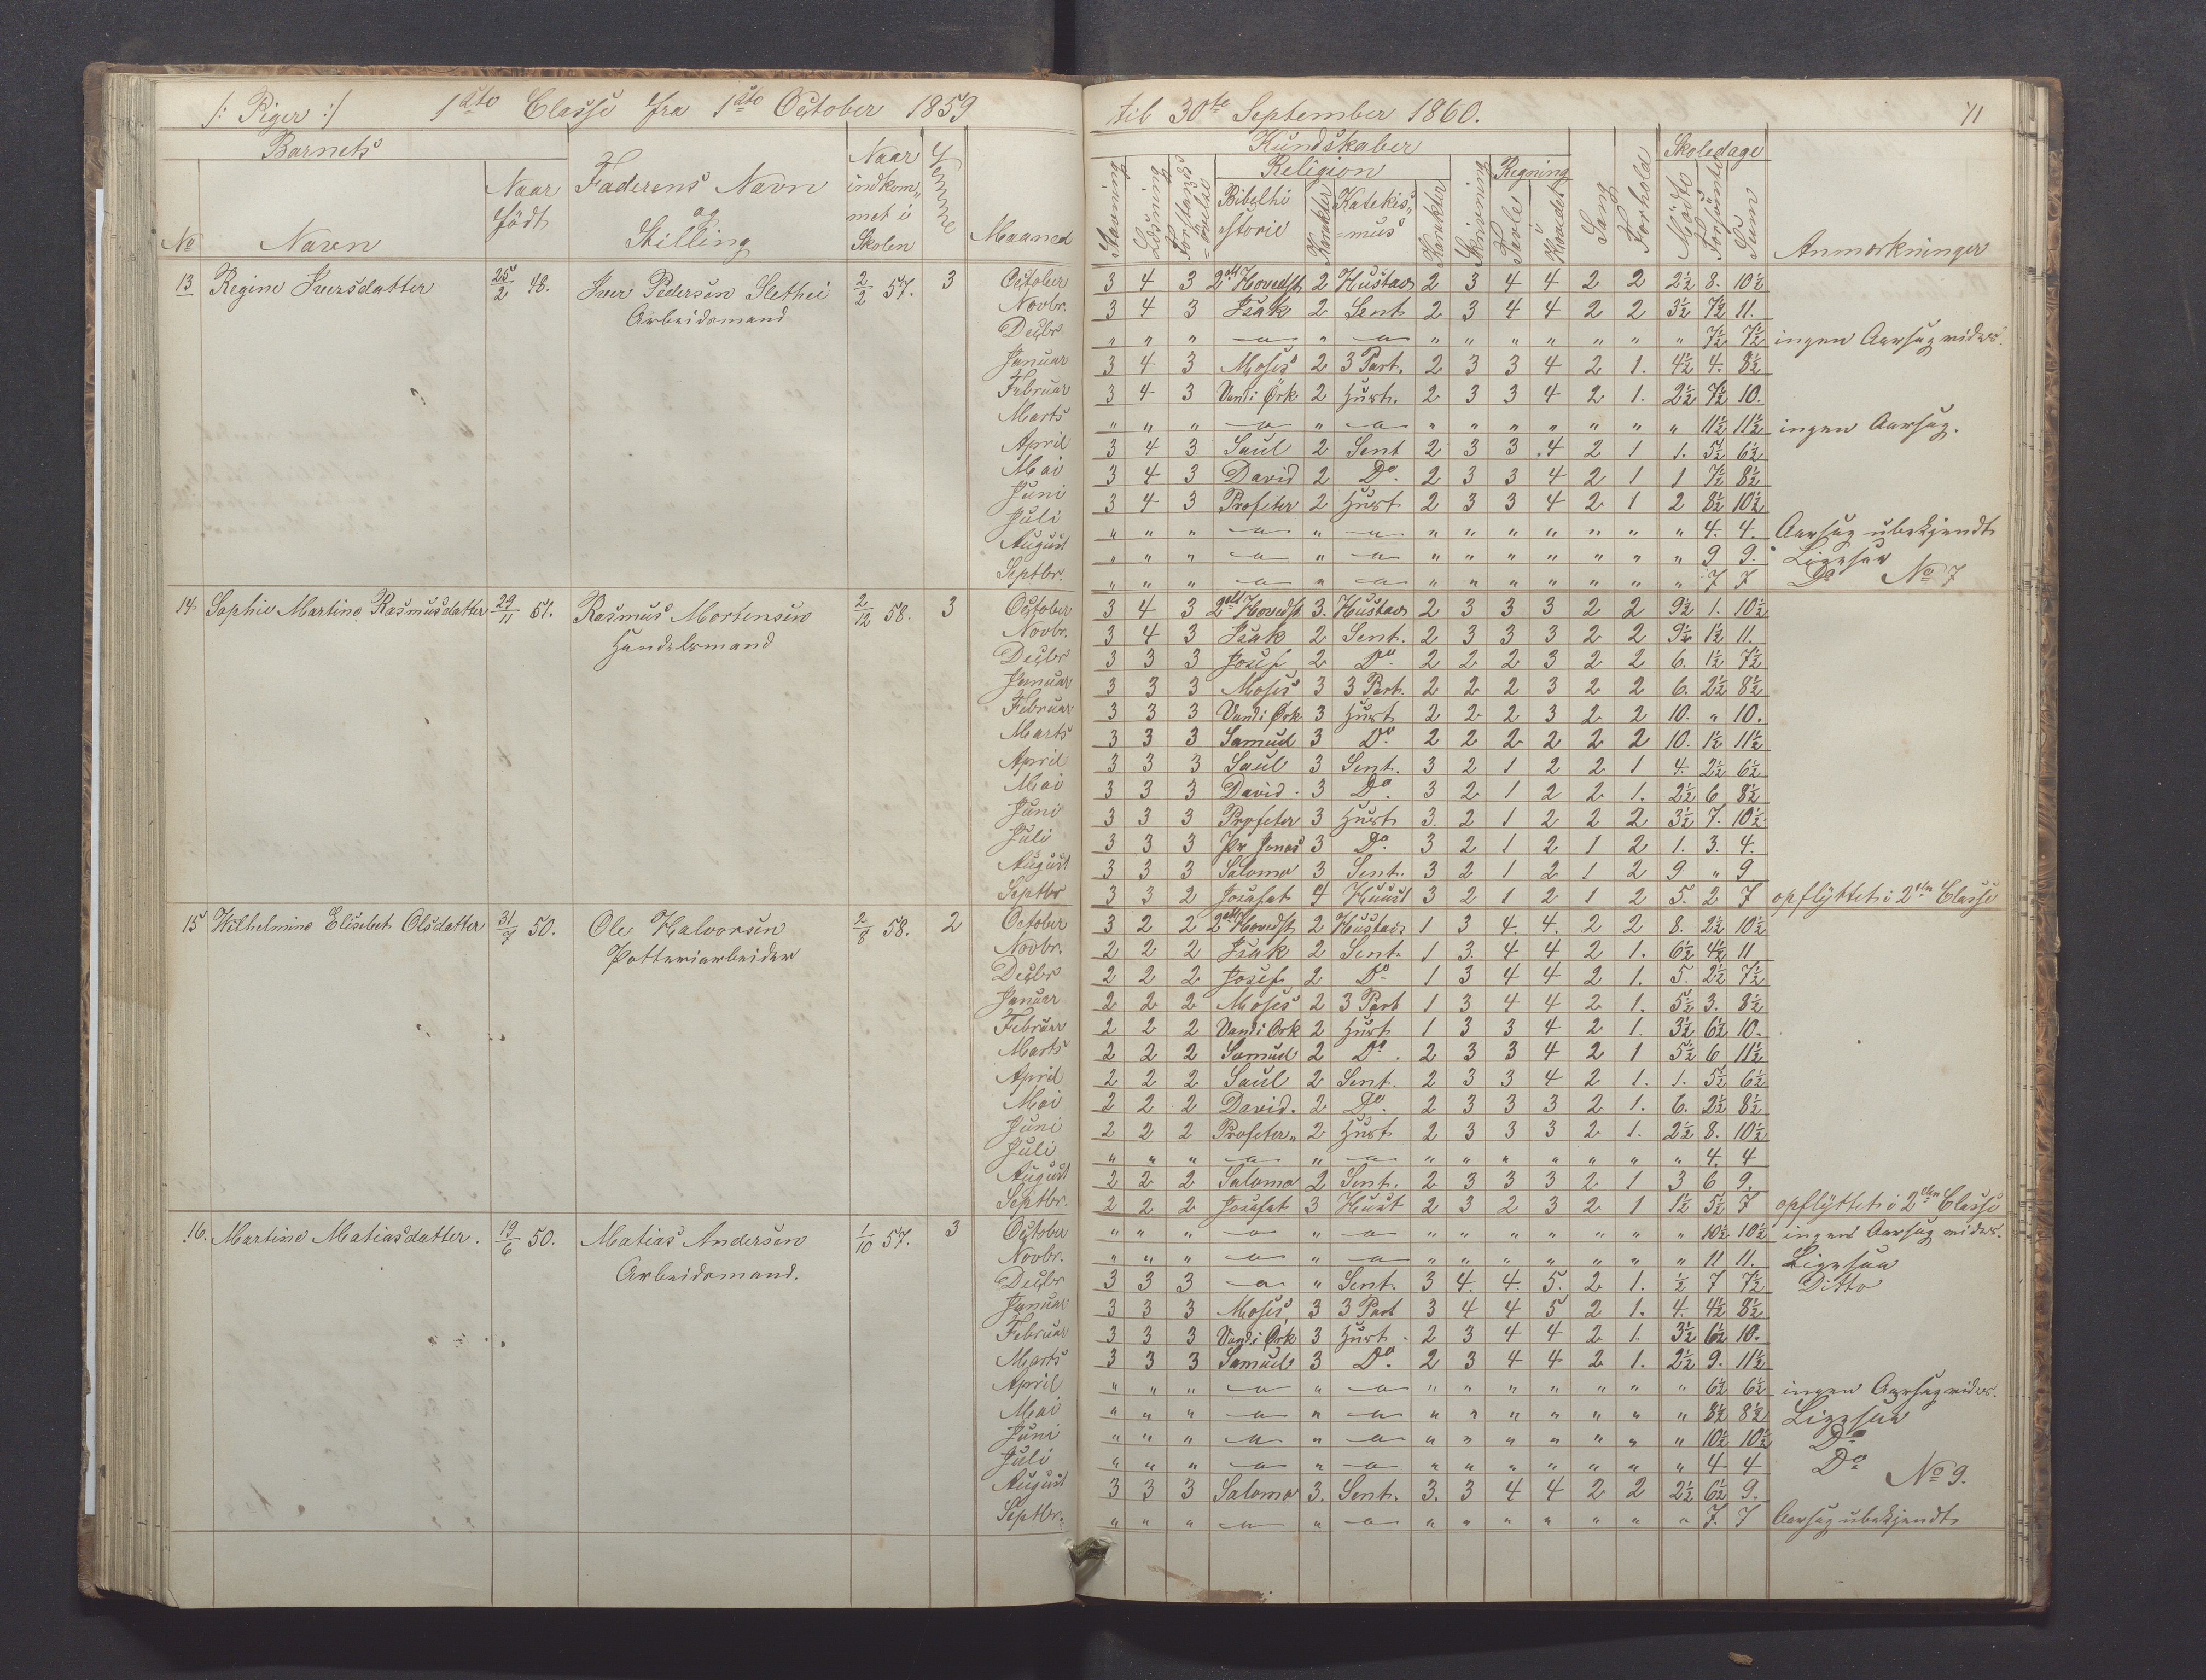 /: Piger :/ 1ste Classe fra 1ste October 1859 til 30te September 1860. 71
Barnets Naar indkom- met i Skolen Evne Kundskaber Skoledage
No Navn Naar Født Faderens Navn og Stilling Maaned Stavning Læsning Forstands- øvelse Religion Bibelhi- storie Karakter Katekis- mus Karakter Skrivning Regning Tavle Hovedet Sang Forhold Mødte Forsømte Sum Anmærkninger
13 Regine Iversdatter 25/2 48. Iver Pedersen Slethei Arbeidsmand 2/2 57. 3
October 3 4 3 2det Hovedst 2 Hustav 2 3 4 4 2 2 2½ 8. 10½
Novbr. 3 4 3 Isak 2 Sent 2 3 4 4 2 2 3½ 7½ 11.
Decbr " " " " " " " " " " " " " 7½ 7½ ingen Aarsag vides.
Januar 3 4 3 Moses 2 3 Part. 2 3 3 4 2 1. 4½ 4. 8½
Februar 3 4 3 Vand i Ørk 2 Hust. 2 3 3 4 2 1. 2½ 7½ 10.
Marts " " " " " " " " " " " " " 11½ 11½ ingen Aarsag.
April 3 4 3 Saul 2 Sent 2 3 3 4 2 1 1. 5½ 6½
Mai 3 4 3 David 2 Do. 2 3 3 4 2 1 1 7½ 8½
Juni 3 4 3 Profeter 2 Hust 2 3 3 4 2 1 2 8½ 10½
Juli " " " " " " " " " " " " " 4. 4. Aarsag ubekjendt
August " " " " " " " " " " " " " 9 9. Ligesaa
Septbr. " " " " " " " " " " " " " 7 7 Do No 7
14. Sophie Martine Rasmusdatter 29/11 51. Rasmus Mortensen Handelsmand 2/12 58. 3
October 3 4 3 2det Hovedst. 3. Hustav 2 3 3 3 2 2 9½ 1. 10½
Novbr. 3 4 3 Isak 2 Sent. 2 3 3 3 2 2 9½ 1½ 11.
Decbr 3 3 3 Josef 2 Do. 2 2 2 3 2 2 6. 1½ 7½
Januar 3 3 3 Moses 3 3 Part. 2 2 2 3 2 2 6. 2½ 8½
Februar 3 3 3 Vand i Ørk 3 Hust 2 2 2 3 2 2 10. " 10.
Marts 3 3 3 Samuel 3 Do. 2 2 2 2 2 2 10. 1½ 11½
April 3 3 3 Saul 3 Sent. 3 2 1 2 2 1 4. 2½ 6½
Mai 3 3 3 David. 3 Do. 3 2 1 2 2 1. 2½ 6 8½
Juni 3 3 3 Profeter 3 Hust 3. 2 1 2 2 2 3½ 7. 10½
Juli 3 3 3 Pr Jonas 3 Do. 3 2 1 2 1 2 1. 3. 4.
August 3 3 3 Salomo 3 Sent. 3 2 1 2 1 2 9 " 9
Septbr 3 3 2 Josafat 4 Huust 3 2 1 2 1 2 5. 2 7 opflyttet i 2den Classe
15 Wilhelmine Elisebet Olsdatter 31/7 50. Ole Halvorsen Potteriarbeider 2/8 58. 2
October 3 2 2 2det Hovedst 2 Hustav 1 3 4. 4. 2 2 8. 2½ 10½
Novbr. 2 2 2 Isak 2 Sent. 1 3. 4 4 2 1. 6½ 4½ 11
Decbr 2 2 2 Josef 2 Do 1 3 4 4 2 1. 5. 2½ 7½
Januar 2 2 2 Moses 2 3 Part 1 3 4 4 2 1. 5½ 3. 8½
Februar 2 2 2 Vand i Ørk 2 Hust 1 3 3 4 2 1. 3½ 6½ 10.
Marts 2 2 2 Samuel 2 Do. 2 3 3 4 2 1 5½ 6 11½
April 2 2 2 Saul 2 Sent. 2 3 3 4 2 1. 1. 5½ 6½
Mai 2 2 2 David. 2 Do. 2 3 3 3 2 1. 6. 2½ 8½
Juni 2 2 2 Profeter 2 Hust 2 3 3 3 2 1. 2½ 8. 10½
Juli " " " " " " " " " " " " " 4. 4
August 2 2 2 Salomo 2 Sent. 2 3 3 3 2 1 3 6 9.
Septbr. 2 2 2 Josafat 3 Hust 2 3 2 3 2 1 1½ 5½ 7 opflyttet i 2den Classe
16. Martine Matiasdatter. 19/6 50. Matias Andersen Arbeidsmand. 1/10 57. 3
October " " " " " " " " " " " " " 10½ 10½ ingen Aarsag vides.
Novbr. " " " " " " " " " " " " " 11 11. Ligesaa
Decbr 3 3 3 " " Sent. 3 4. 4. 5. 2 1. ½ 7 7½ Ditto
Januar 3 3 3 Moses 3 3 Part 3 4 4 5 2 1. 4. 4½ 8½
Februar 3 3 3 Vand i Ørk 3 Hust. 2 3 4 4 2 1. 3½ 6½ 10.
Marts 3 3 3 Samuel 3 Do. 2 3 4 4 2 1. 2½ 9. 11½
April " " " " " " " " " " " " " 6½ 6½ ingen Aarsag vides.
Mai " " " " " " " " " " " " " 8½ 8½ Ligesaa
Juni " " " " " " " " " " " " " 10½ 10½ Do
Juli " " " " " " " " " " " " " 4. 4 Do No 9.
August 3 3 3 Salomo 3. Sent. 3. 3 4 4 2 2 2½ 6½ 9.
Septbr. " " " " " " " " " " " " " 7. 7 Aarsag ubekjendt